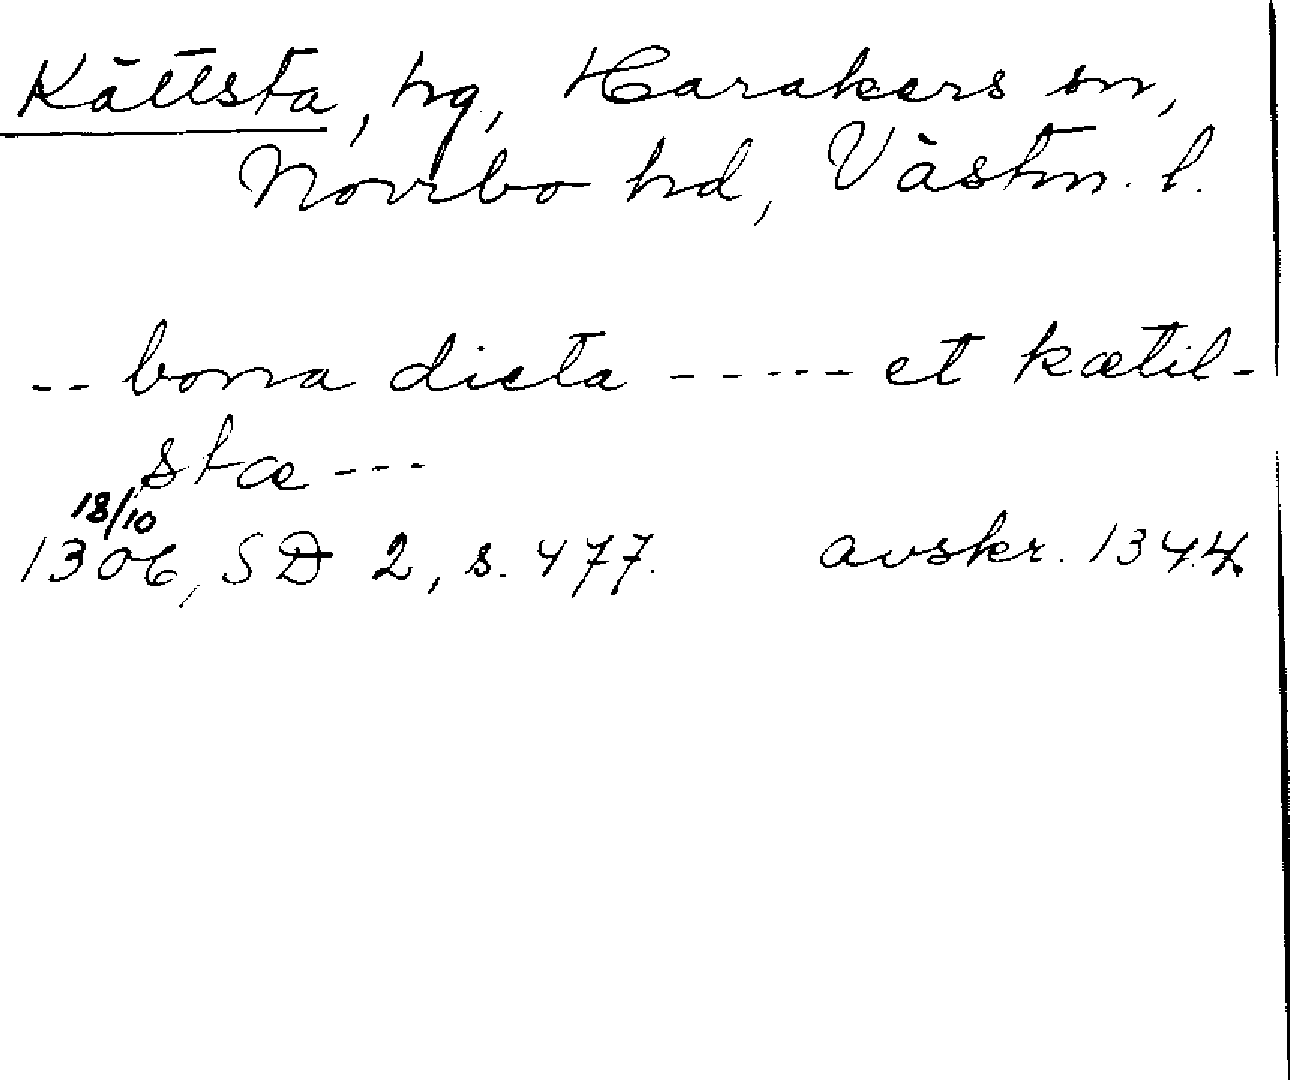 Kättsta, hg, Harakers sn,
Norrbo hd, Västm. l.
-- bona dicta ----- et kætil-
stæ ---
18/10
1306, SD 2, s. 477. avskr. 1344.